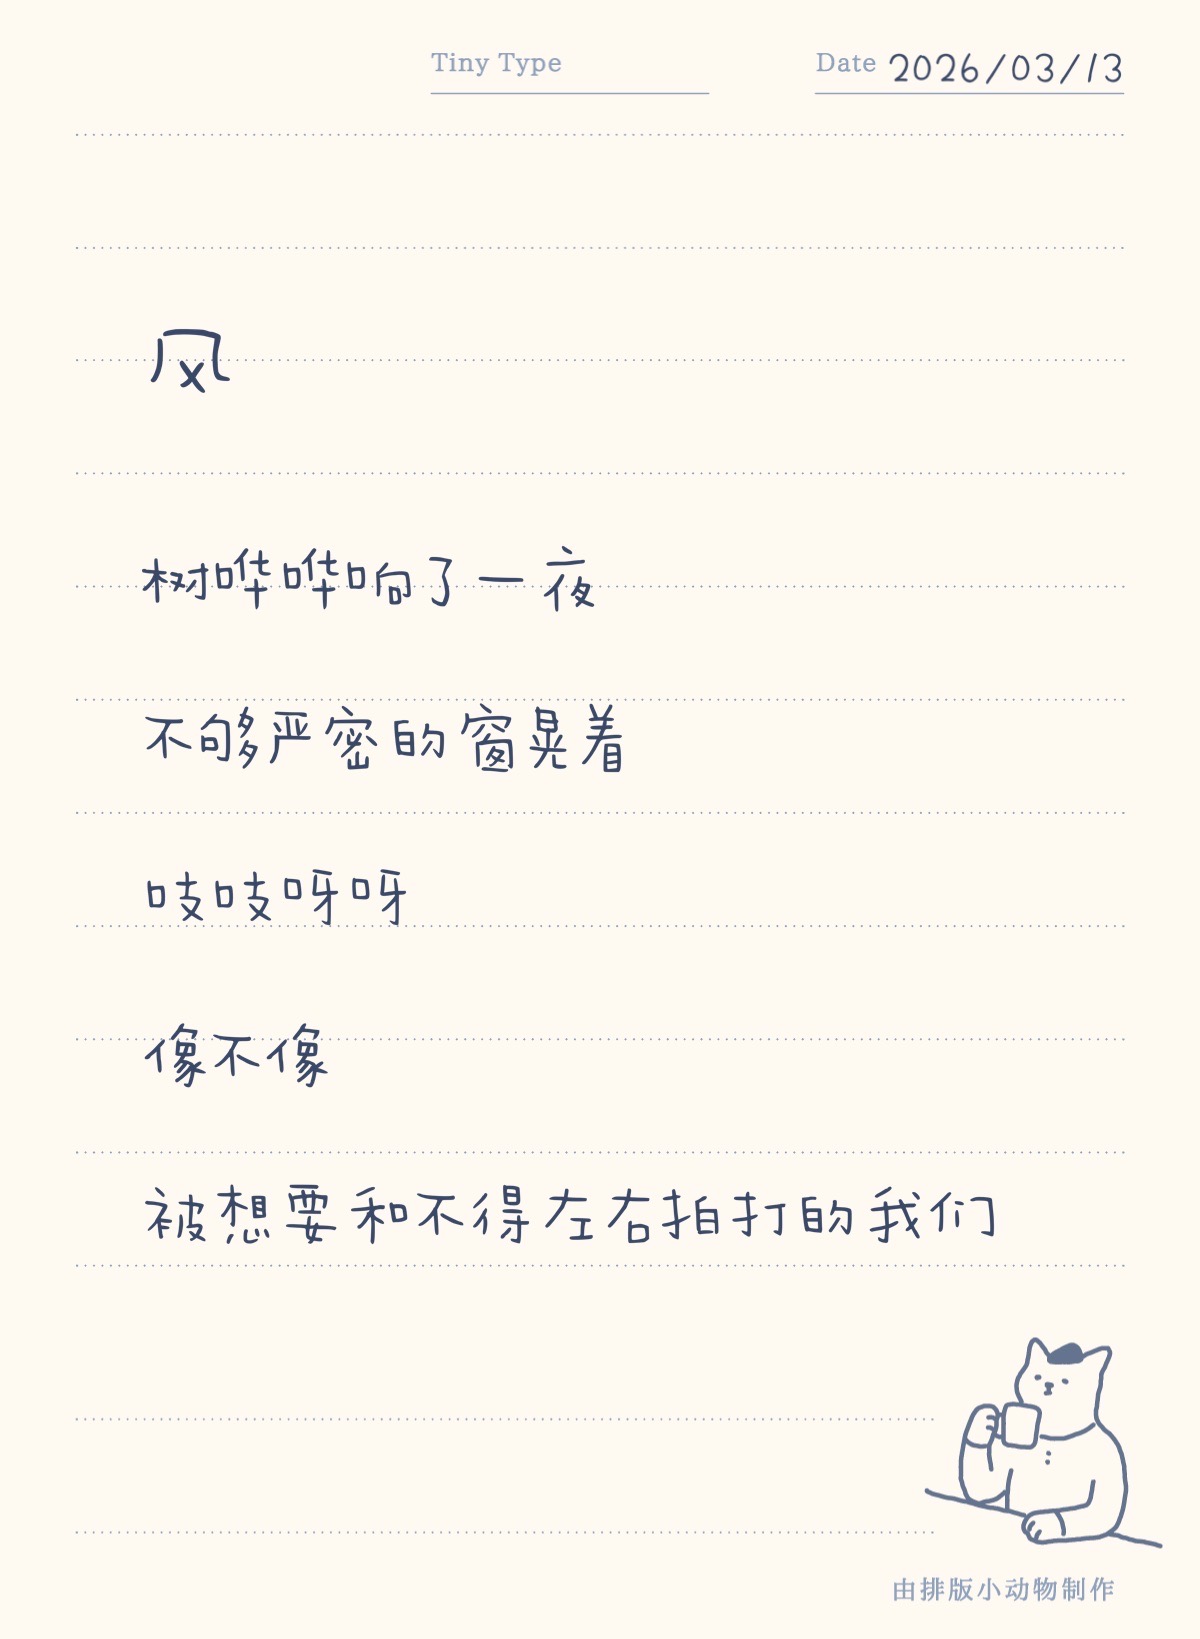 Tiny Type
Date 2026/03/13
风
树哗哗响了一夜
不够严密的窗晃着
吱吱呀呀
像不像
被想要和不得左右拍打的我们
由排版小动物制作